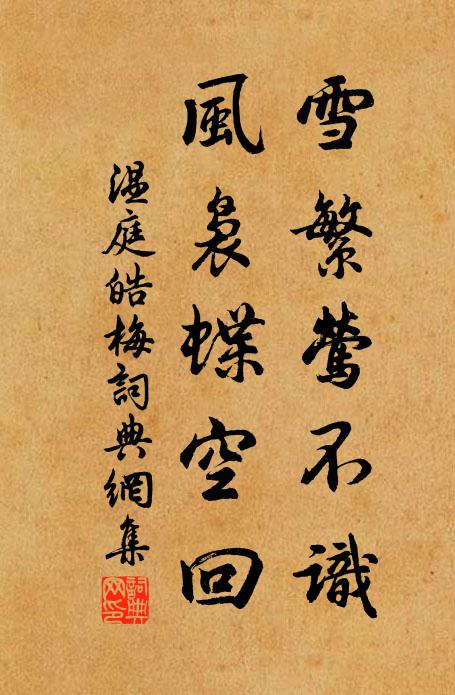 雪繁鶯不識
風裊蝶空回
溫庭皓梅詞典網集
詞典網印